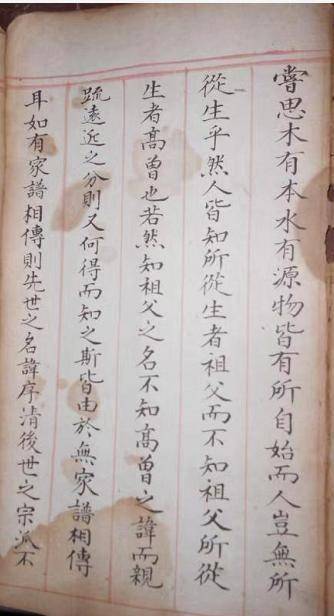 嘗思木有本水有源物皆有所自始而人豈無所
從生乎然人皆知所從生者祖父而不知祖父所從
生者高曾也若然知祖父之名不知高曾之諱而親
疏遠近之分則又何得而知之斯皆由於無家譜相傳
耳如有家譜相傳則先世之名諱序清後世之宗派不